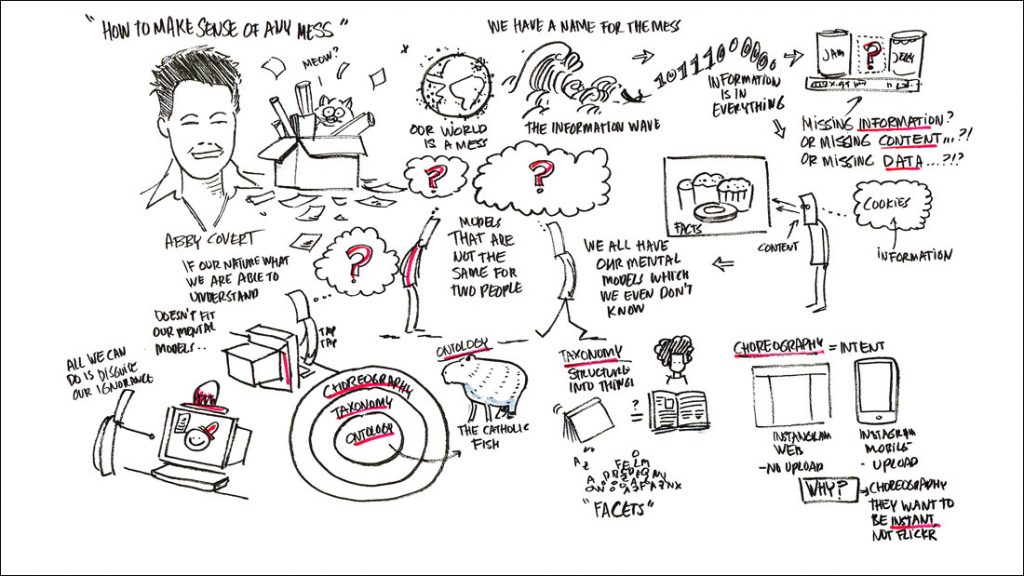 "HOW TO MAKE SENSE OF ANY MESS"
ABBY COVERT
MEOW?
OUR WORLD
IS A MESS
WE HAVE A NAME FOR THE MESS
THE INFORMATION WAVE
INFORMATION
IS IN
EVERYTHING
JAM
?
JELLY
MISSING INFORMATION?
OR MISSING CONTENT...?!
OR MISSING DATA...?!?
FACTS
CONTENT
COOKIES
INFORMATION
WE ALL HAVE
OUR MENTAL
MODELS WHICH
WE EVEN DON'T
KNOW
?
?
MODELS
THAT ARE
NOT THE
SAME FOR
TWO PEOPLE
?
IF OUR NATURE WHAT
WE ARE ABLE TO
UNDERSTAND
DOESN'T FIT
OUR MENTAL
MODELS..
TAP
TAP
ALL WE CAN
DO IS DISGUISE
OUR IGNORANCE
CHOREOGRAPHY
TAXONOMY
ONTOLOGY
ONTOLOGY
THE CATHOLIC
FISH
TAXONOMY
STRUCTURE
INTO THINGS
?
=
"FACETS"
CHOREOGRAPHY = INTENT
INSTANGRAM
WEB
- NO UPLOAD
INSTAGRAM
MOBILE
- UPLOAD
WHY?
CHOREOGRAPHY
THEY WANT TO
BE INSTANT,
NOT FLICKR